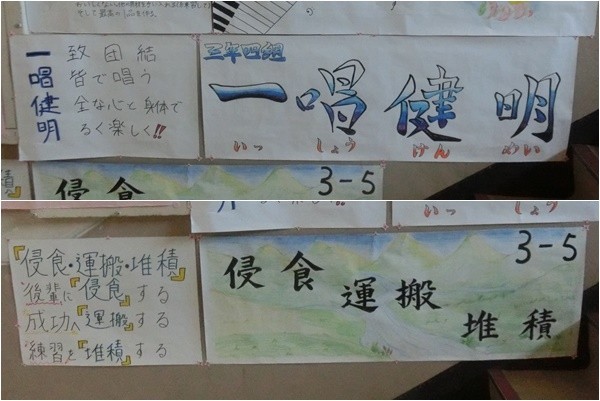 一致団結
唱 皆で唱う
健全な心と身体で
明るく楽しく!!
三年四組
一唱健明
いっ しょう けん めい
侵食
3-5
いっ しょう
『侵食・運搬・堆積』
後輩に『侵食』する
成功へ『運搬』する
練習を『堆積』する
3-5
侵食
運搬
堆積